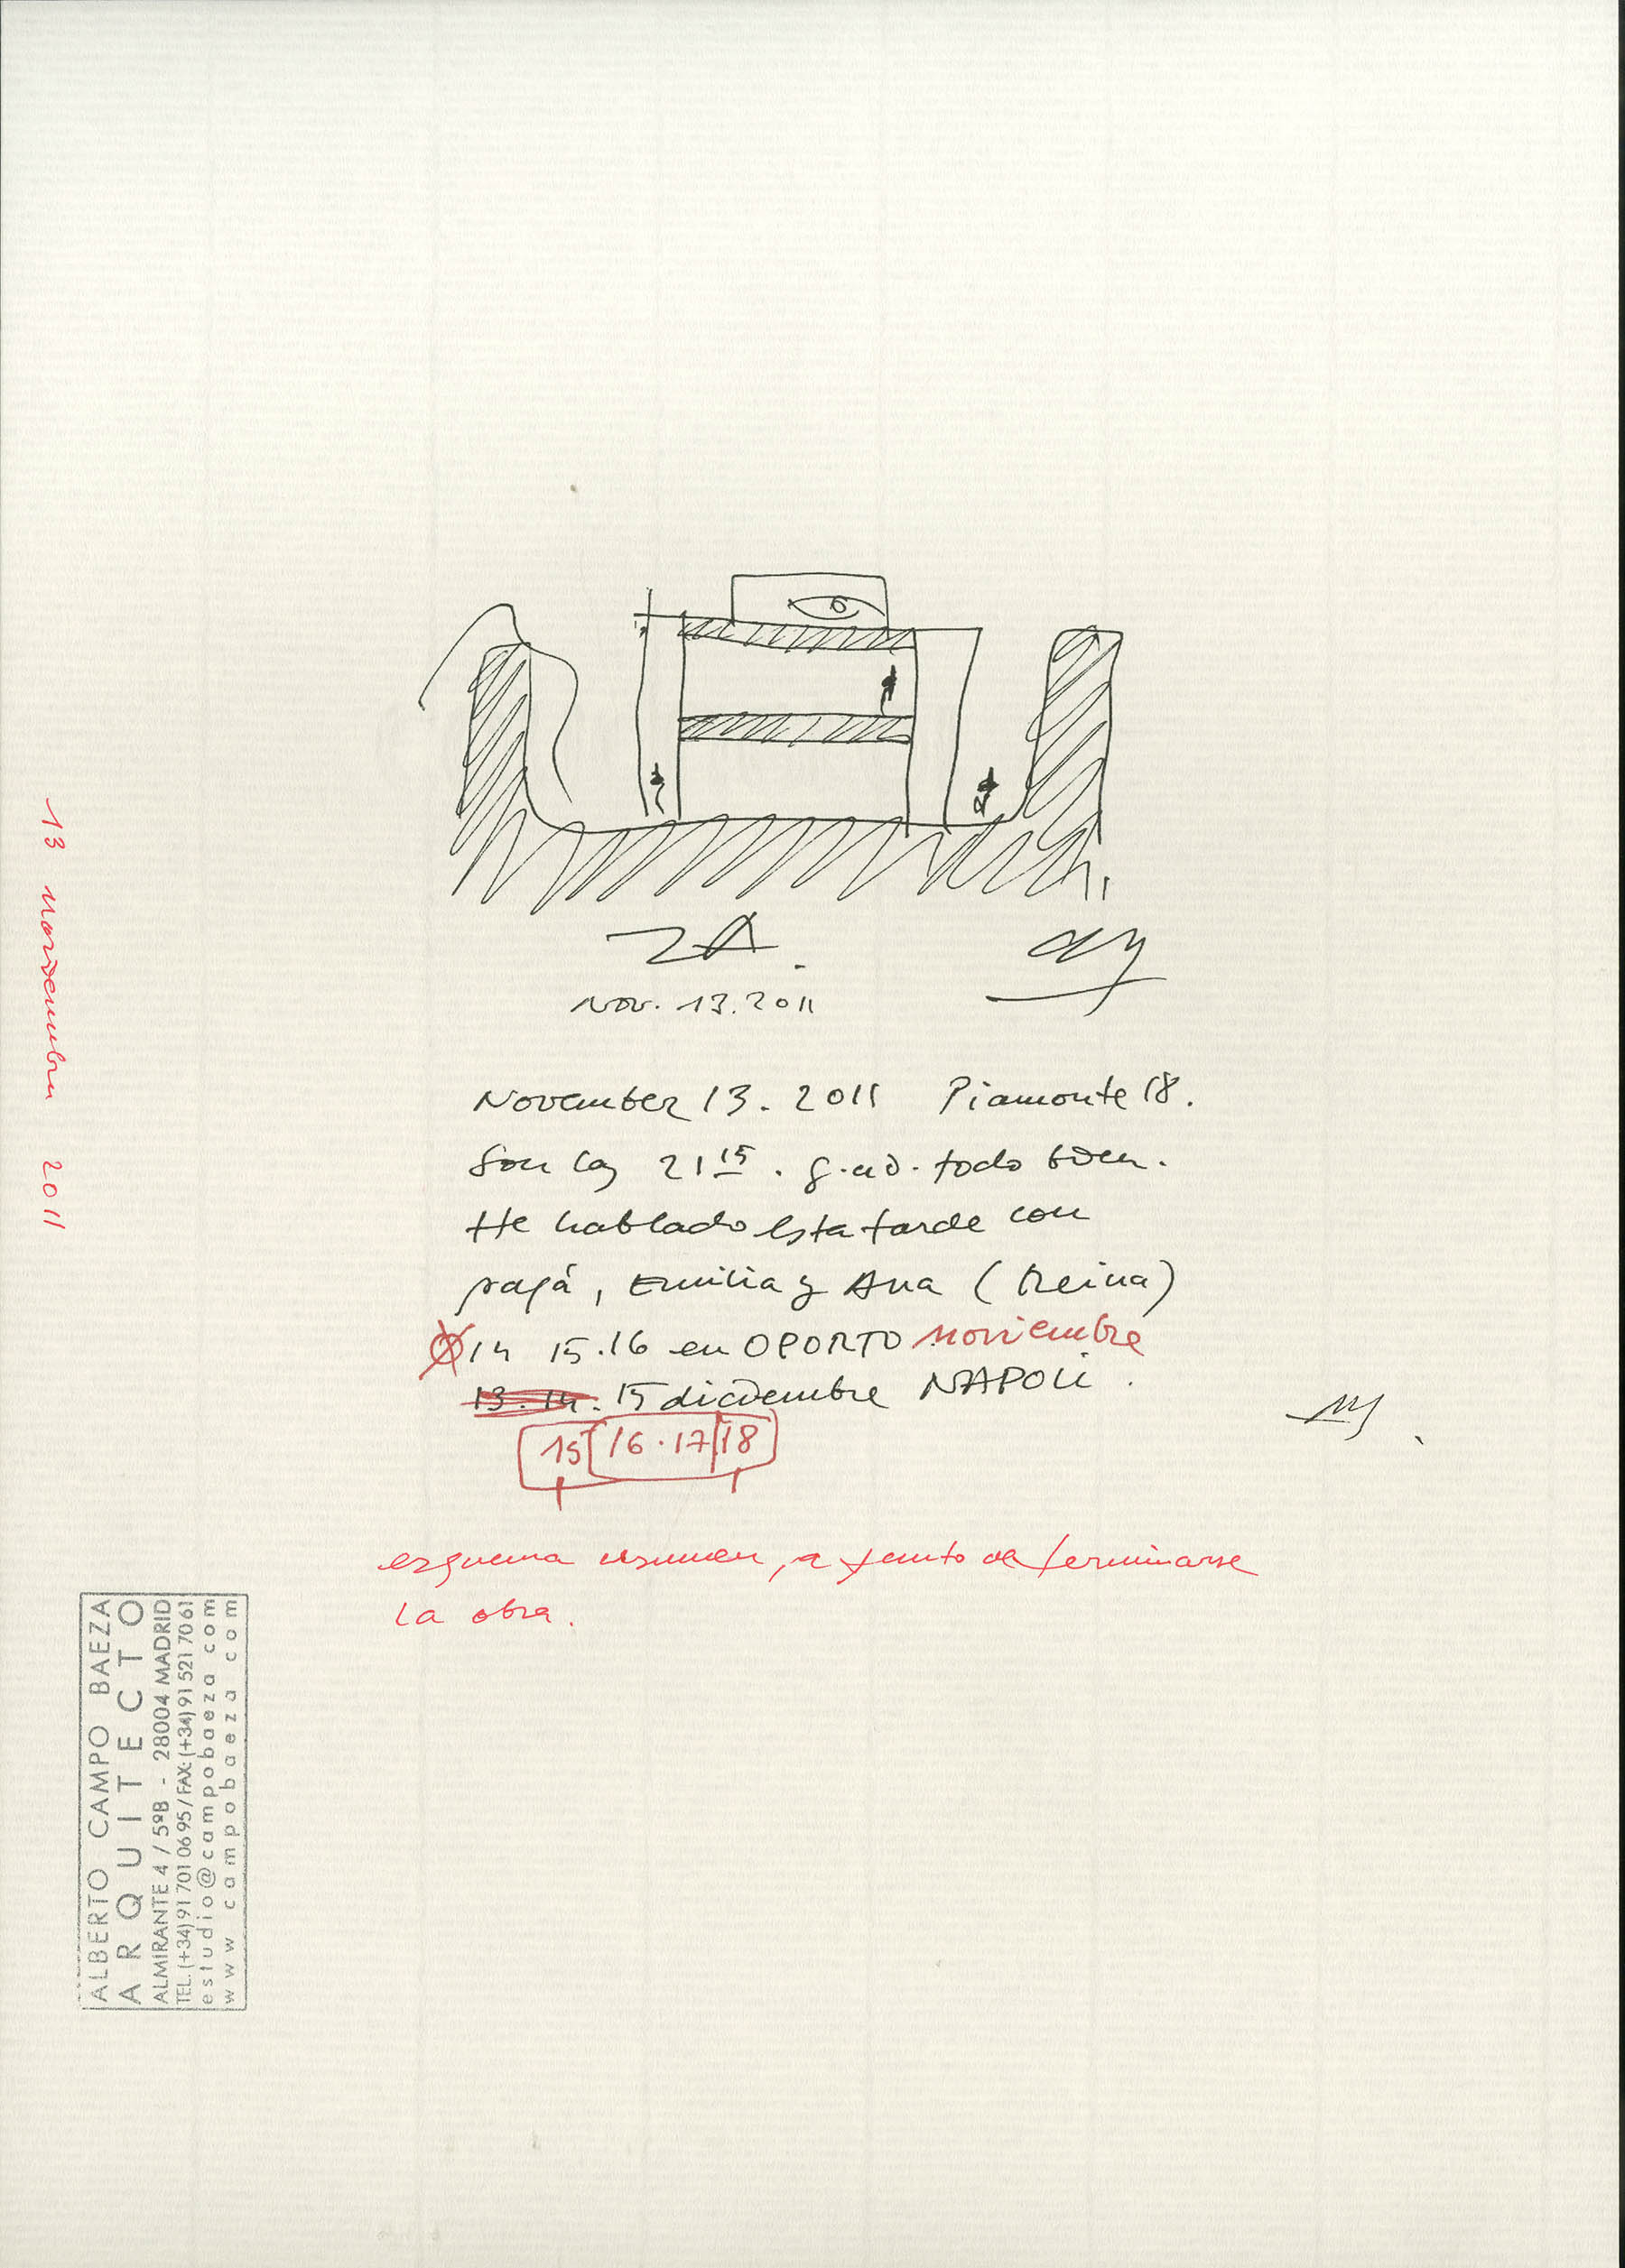 ZA.
Nov. 13. 2011
November 13. 2011 Piamonte 18.
Son las 21 15. g.a.D. todo bien.
He hablado esta tarde con
papá, Emilia y Ana (Reina)
14 15.16 en OPORTO noviembre
13.14. 15 diciembre NAPOLI.
15 16.17 18
esquema resumen, a punto de terminarse
la obra.
13 noviembre 2011
ALBERTO CAMPO BAEZA
ARQUITECTO
ALMIRANTE 4 / 5ºB - 28004 MADRID
TEL. (+34) 91 701 06 95 / FAX: (+34) 91 521 70 61
estudio@campobaeza com
www campobaeza com